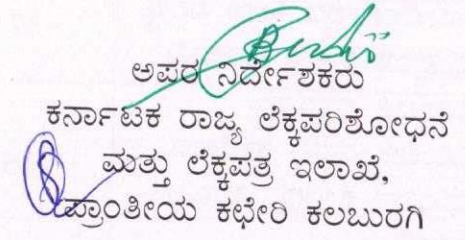 ಅಪರ ನಿರ್ದೇಶಕರು
ಕರ್ನಾಟಕ ರಾಜ್ಯ ಲೆಕ್ಕಪರಿಶೋಧನೆ
ಮತ್ತು ಲೆಕ್ಕಪತ್ರ ಇಲಾಖೆ,
ಪ್ರಾಂತೀಯ ಕಛೇರಿ ಕಲಬುರಗಿ